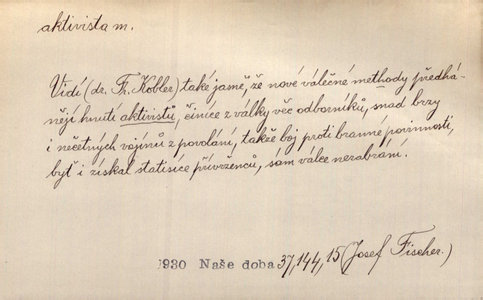 aktivista m.
Vidí (dr. Fr. Kobler) také jasně, že nové válečné methody předhá-
nějí hnutí aktivistů, činíce z války věc odborníků, snad brzy
i nečetných vojínů z povolání, takže boj proti branné povinnosti,
byť i získal statisíce přívrženců, sám válce nezabrání.
1930 Naše doba 37,144,15 (Josef Fischer.)